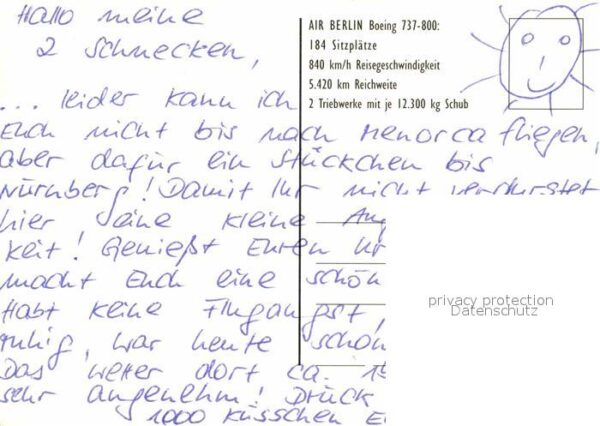 Hallo meine
2 Schnecken,
... leider kann ich
Euch nicht bis nach Menorca fliegen,
aber dafür ein Stückchen bis
Nürnberg! Damit Ihr nicht verdurstet
hier eine kleine
keit! Genießt Euren
macht Euch eine schön
Habt keine Flugangst,
ruhig, war heute schon
Das Wetter dort ca. 15
sehr angenehm! Drück
1000 Küsschen
AIR BERLIN Boeing 737-800:
184 Sitzplätze
840 km/h Reisegeschwindigkeit
5.420 km Reichweite
2 Triebwerke mit je 12.300 kg Schub
privacy protection
Datenschutz